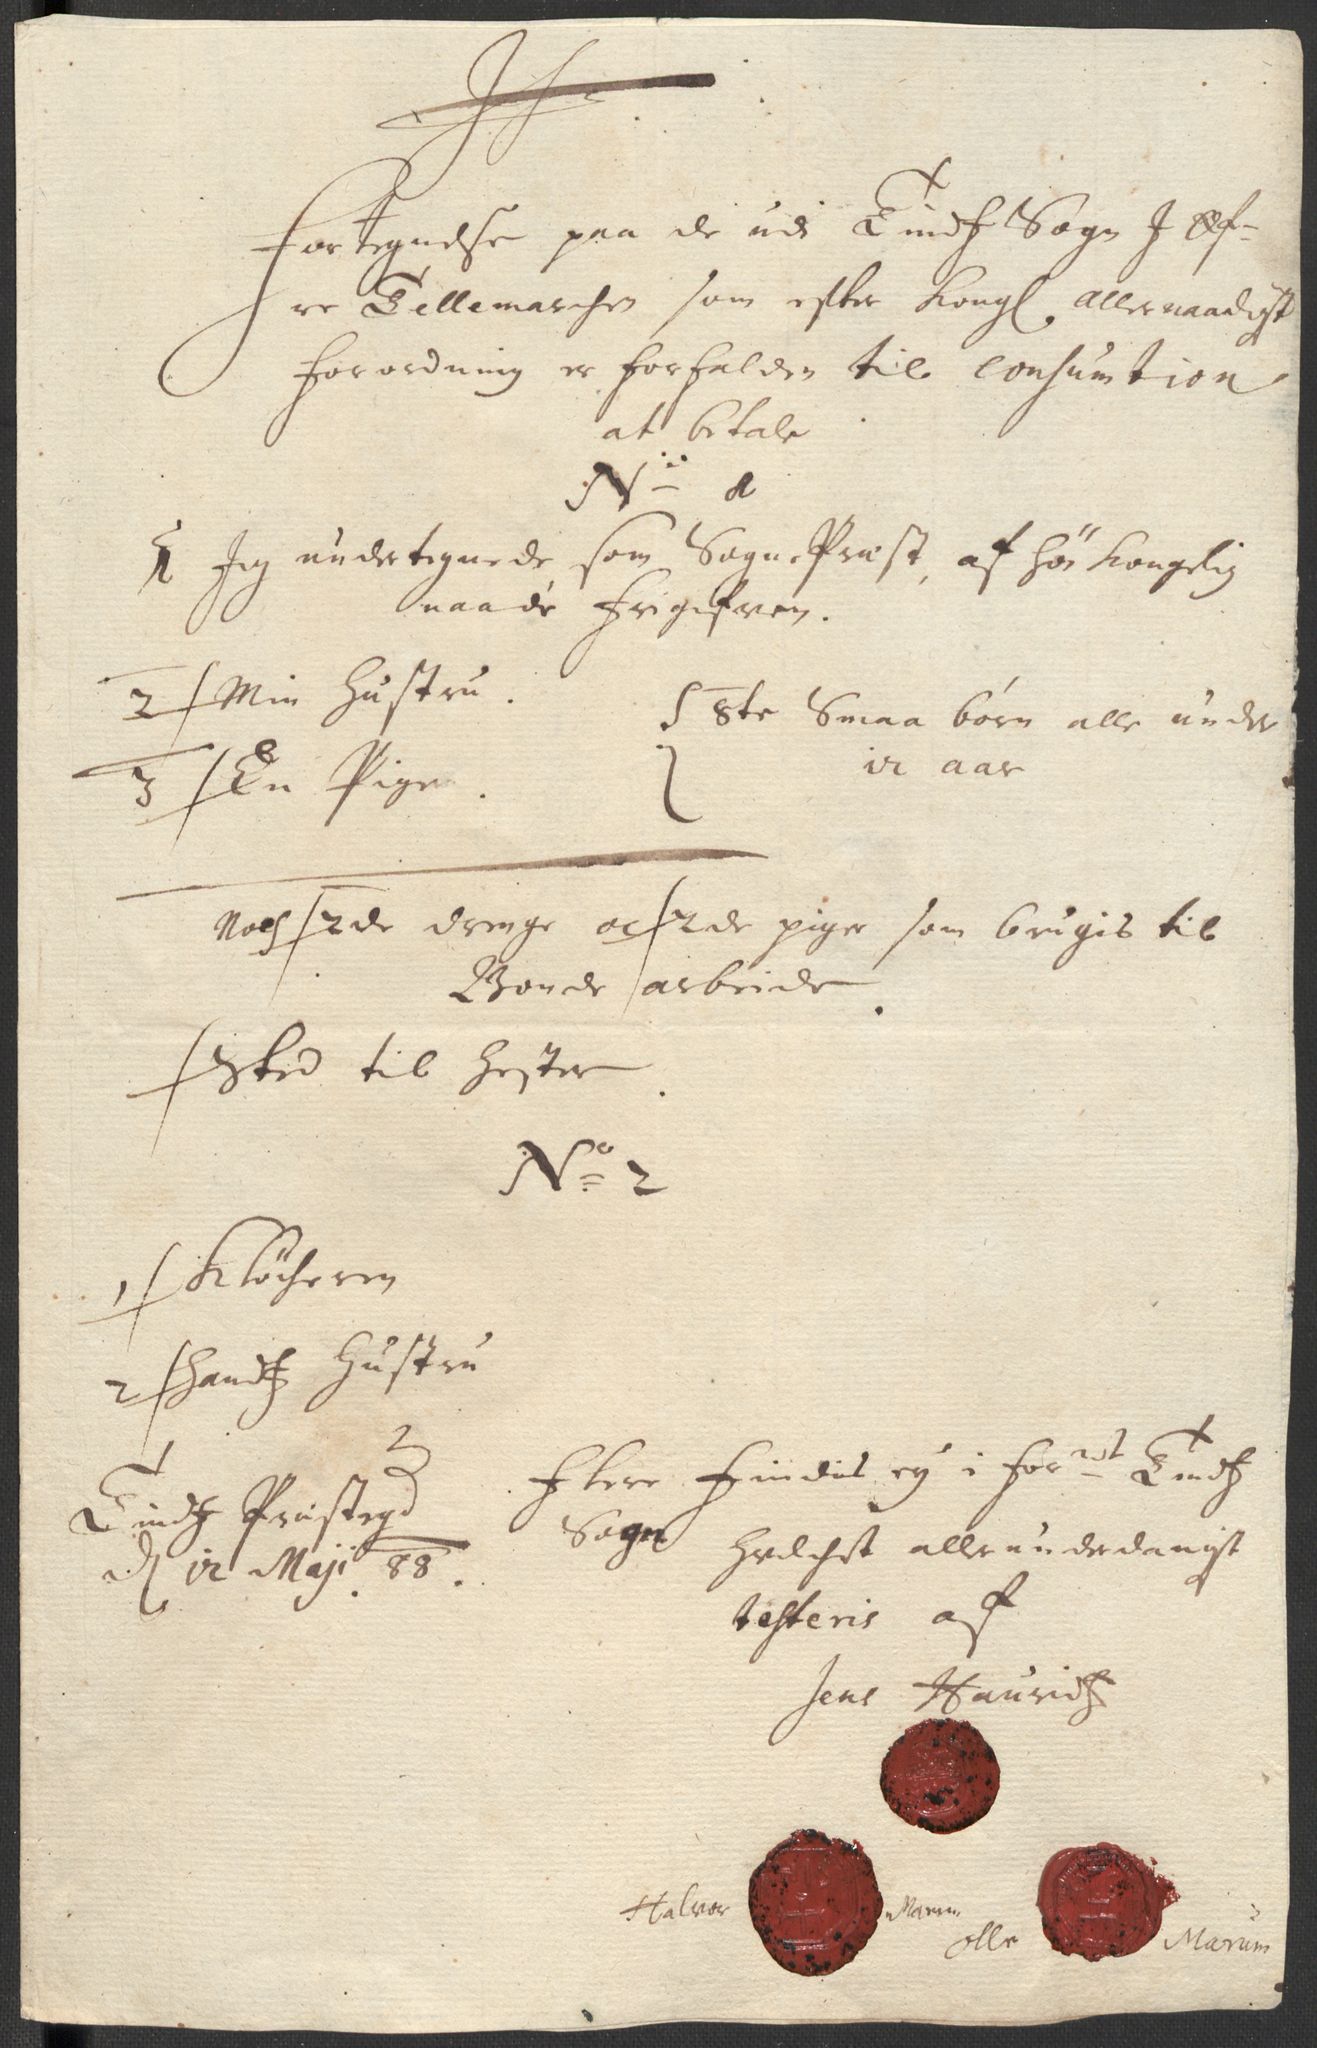 Fortegnelse paa de udi Tindtz Sogn J Øf-
re Tellemarchen som efter Kongl. Allernaadigst
forordning er forfalden til Consumtion
at betale
No 1
1 Jeg undertegnede, som SognePræst, af höi Kongelig
naade frigifven.
2/ Min Hustru.
3/ En Pige.
8te Smaa börn alle under
12 aar
Noch /2de drenge oc /2de piger som brugis til
Bonde arbeide.
/Sted til Hester.
No 2
1/ Klöcheren
2/ Handtz Hustru
Tindtz Præstegd
d 12 Maji 88.
Flere findis ey i forne Tindtz
Sogn
Hvelchet allerunderdanigst
testeris af
Jens Lauridtz
Halvor Marum
Olle Marum